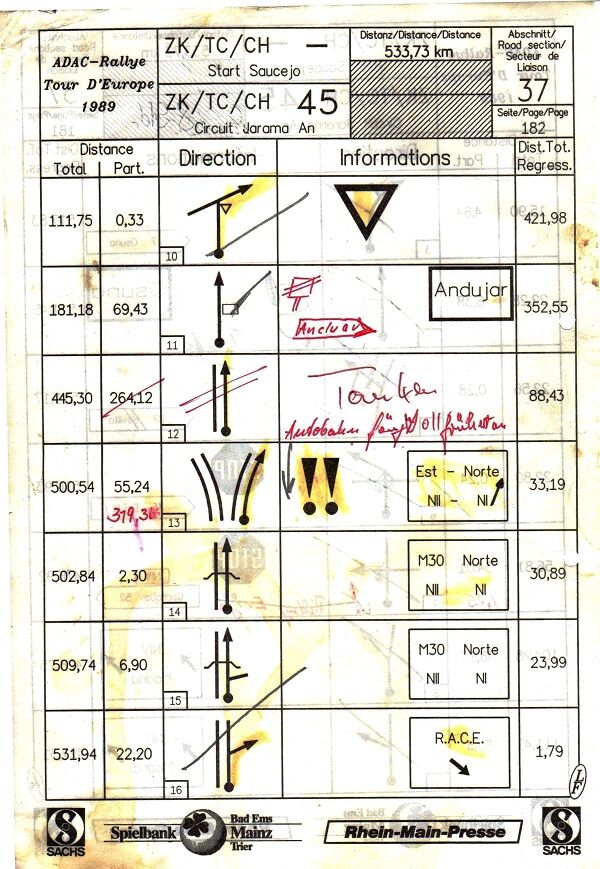 ADAC-Rallye
Tour D'Europe
1989
ZK/TC/CH –
Start Saucejo
ZK/TC/CH 45
Circuit Jarama An
Distanz/Distance/Distance
533,73 km
Abschnitt/
Road section/
Secteur de
Liaison
37
Seite/Page/Page
182
Distance
Total Part.
Direction
Informations
Dist.Tot.
Regress.
111,75 0,33
10
421,98
181,18 69,43
11
Andujar
352,55
445,30 264,12
12
88,43
Autobahn
500,54 55,24
13
!!
Est – Norte
NII – NI
33,19
502,84 2,30
14
M30 Norte
NII NI
30,89
509,74 6,90
15
M30 Norte
NII NI
23,99
531,94 22,20
16
R.A.C.E.
1,79
SACHS
Spielbank
Bad Ems
Mainz
Trier
Rhein-Main-Presse
SACHS